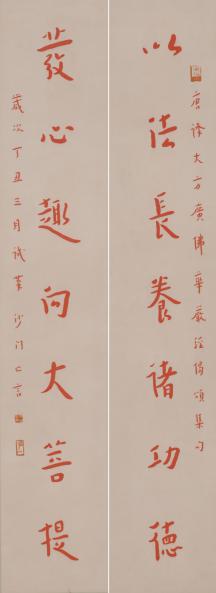 唐譯大方廣佛華嚴經偈頌集句
以法長養諸功德
發心趣向大菩提
歲次丁丑三月沙門一言